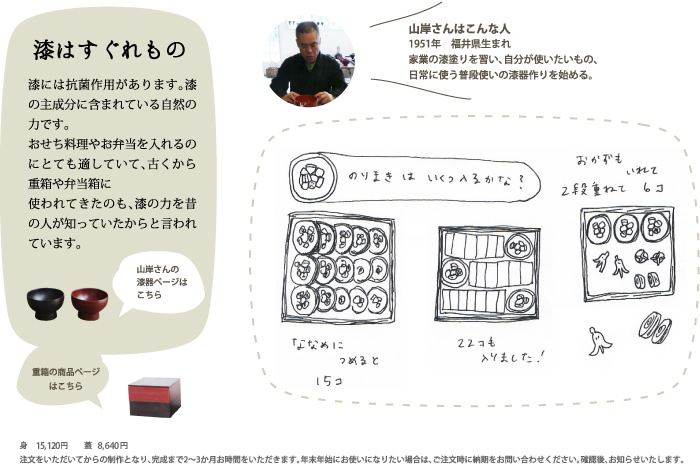 漆はすぐれもの
漆には抗菌作用があります。漆
の主成分に含まれている自然の
力です。
おせち料理やお弁当を入れるの
にとても適していて、古くから
重箱や弁当箱に
使われてきたのも、漆の力を昔
の人が知っていたからと言われ
ています。
山岸さんの
漆器ページは
こちら
重箱の商品ページ
はこちら
山岸さんはこんな人
1951年　福井県生まれ
家業の漆塗りを習い、自分が使いたいもの、
日常に使う普段使いの漆器作りを始める。
のりまきは いくつ入るかな？
ななめに
つめると
15コ
22コも
入りました！
おかずも
いれて
2段重ねて 6コ
身　15,120円　　蓋　8,640円
注文をいただいてからの制作となり、完成まで2～3か月お時間をいただきます。年末年始にお使いになりたい場合は、ご注文時に納期をお問い合わせください。確認後、お知らせいたします。